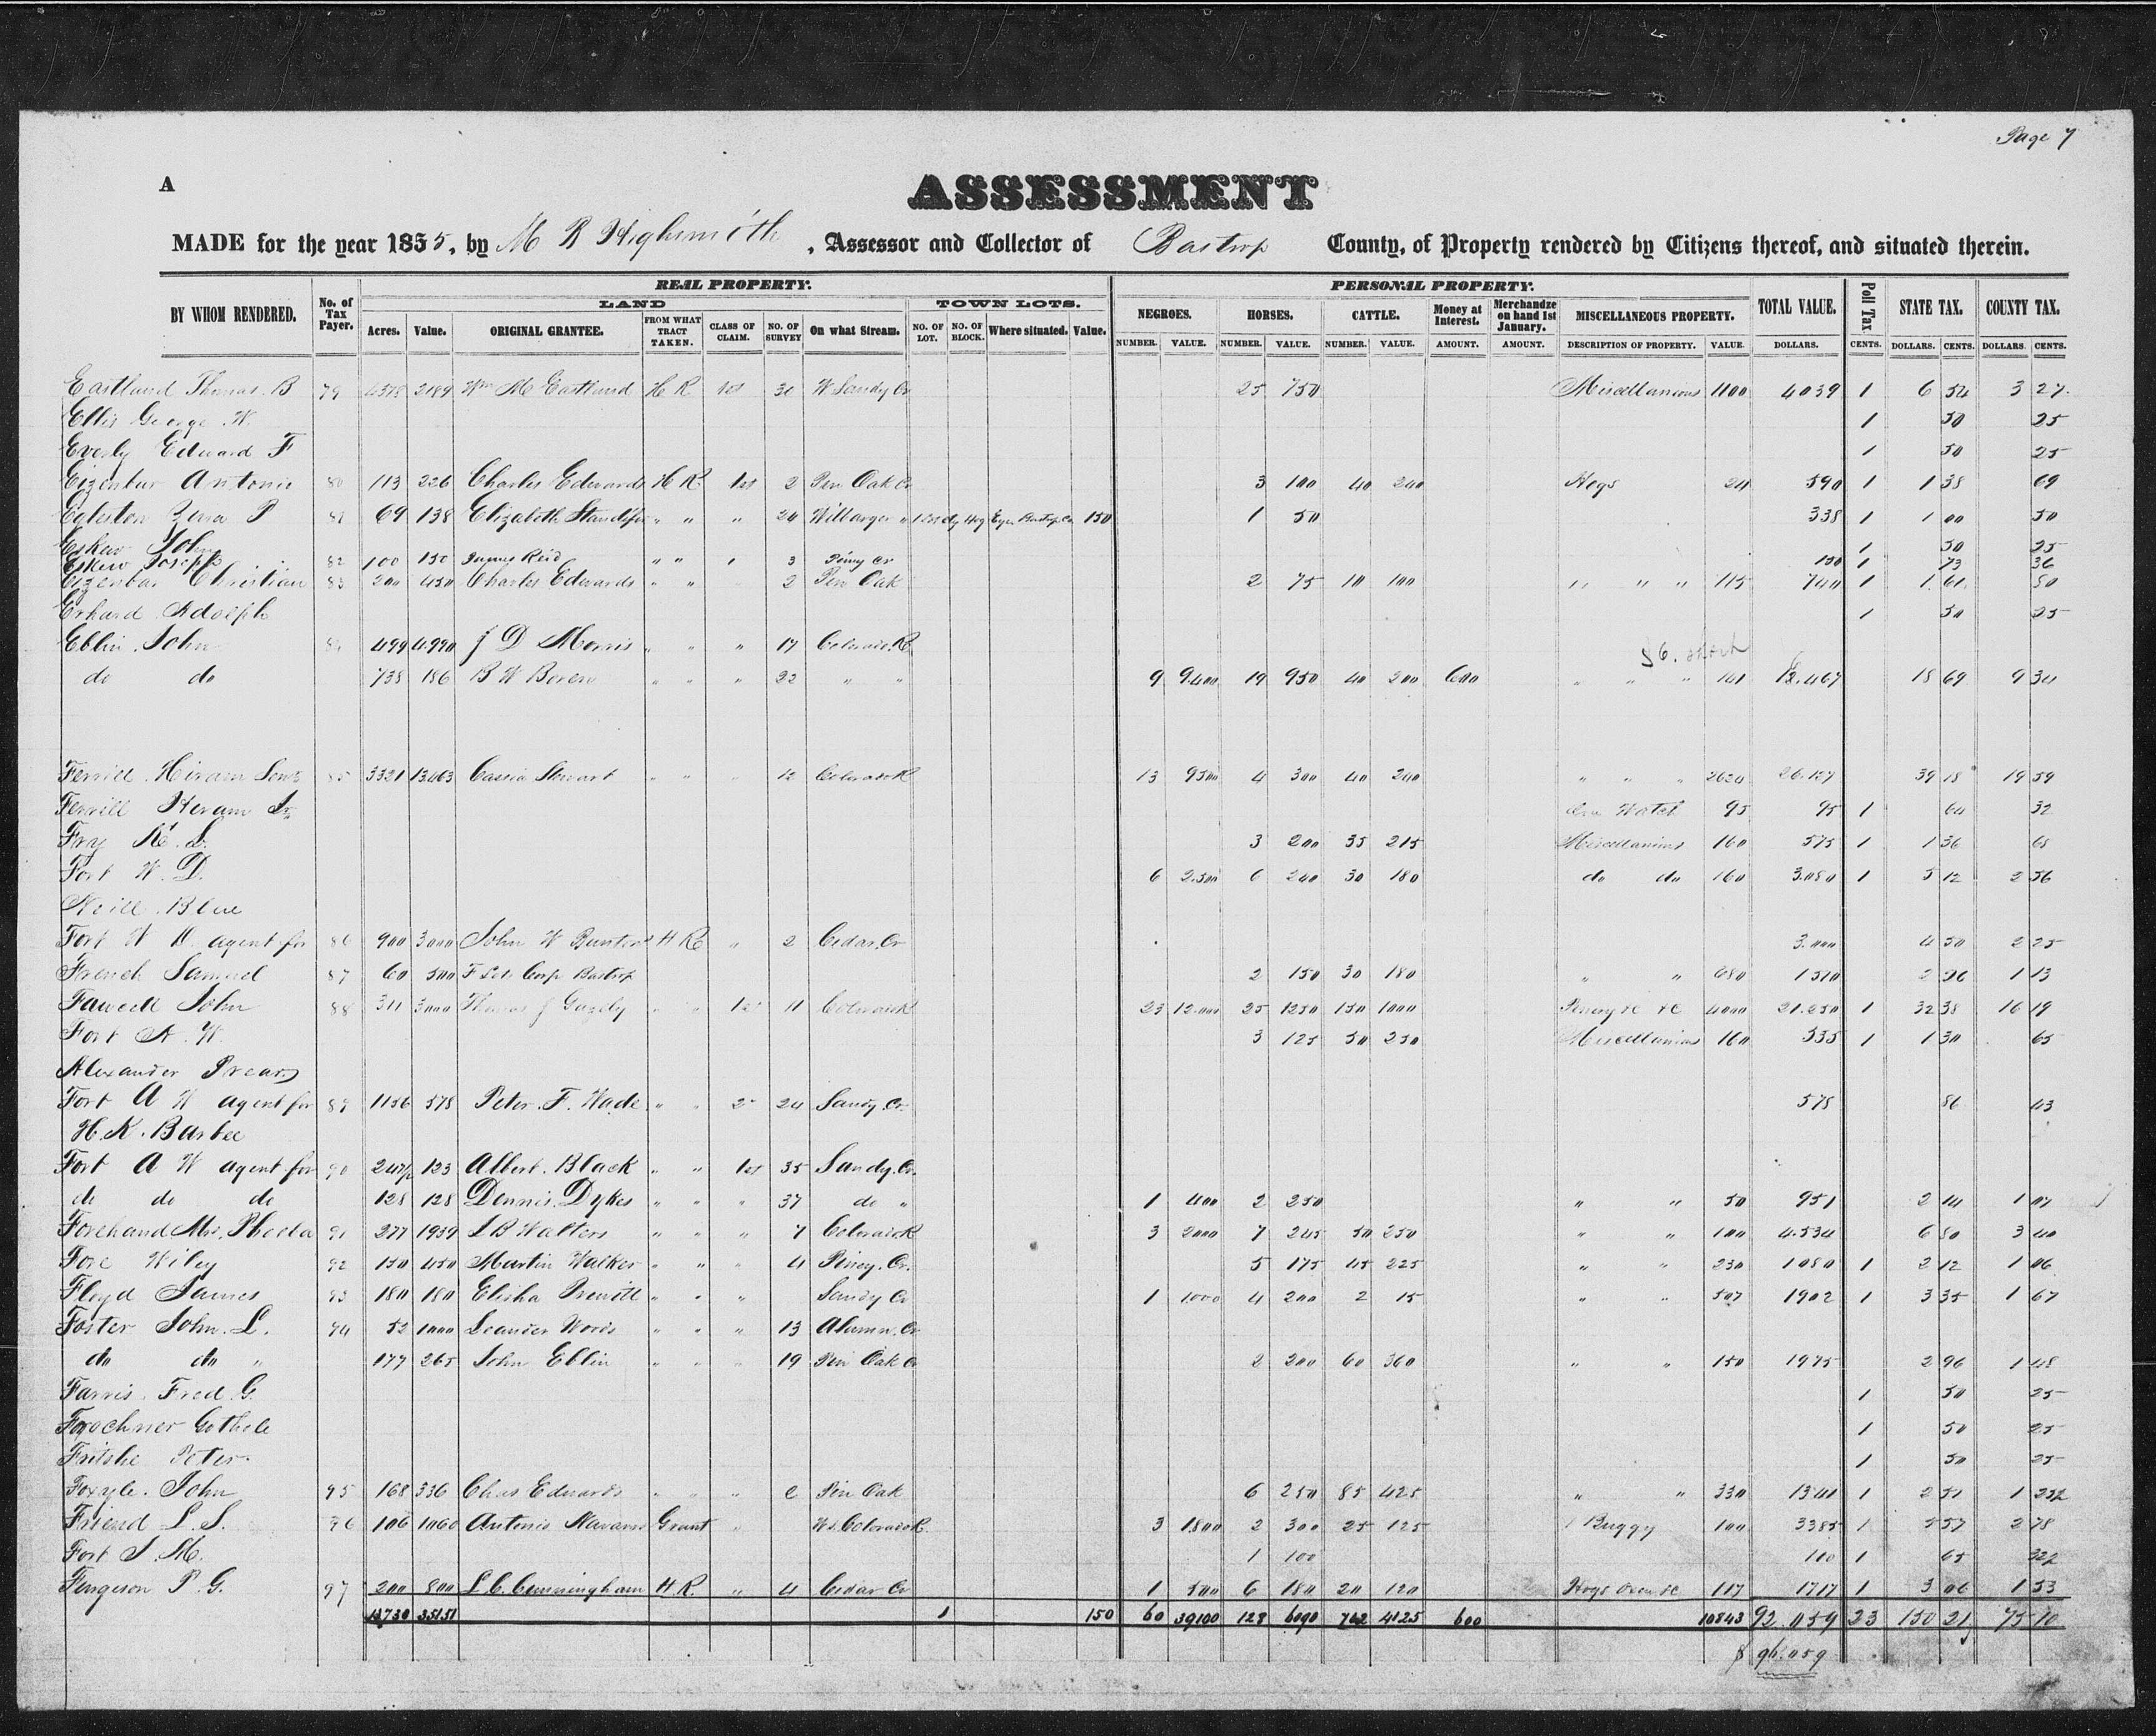 Page 7
A
ASSESSMENT
MADE for the year 1855, by M B Highsmith, Assessor and Collector of Bastrop County, of Property rendered by Citizens thereof, and situated therein.
REAL PROPERTY. PERSONAL PROPERTY.
LAND TOWN LOTS.
BY WHOM RENDERED. No. of Tax Payer. Acres. Value. ORIGINAL GRANTEE. FROM WHAT TRACT TAKEN. CLASS OF CLAIM. NO. OF SURVEY On what Stream. NO. OF LOT. NO. OF BLOCK. Where situated. Value. NEGROES. HORSES. CATTLE. Money at Interest. Merchandze on hand 1st January. MISCELLANEOUS PROPERTY. TOTAL VALUE. Poll Tax STATE TAX. COUNTY TAX.
NUMBER. VALUE. NUMBER. VALUE. NUMBER. VALUE. AMOUNT. AMOUNT. DESCRIPTION OF PROPERTY. VALUE. DOLLARS. CENTS. DOLLARS. CENTS. DOLLARS. CENTS.
Eastland Thomas B 79 4378 2189 Wm M Eastland H R 1st W Sandy Cr 25 750 Miscellanious 1100 4039 1 6 54 3 27
Ellis George W. 1 50 25
Everly Edward F 1 50 25
Eizenbur Antonie 80 113 226 Charles Edwards H R 1st 2 Pin Oak Cr 3 100 40 240 Hogs 24 590 1 1 38 69
Egleston P 81 69 138 Elizabeth Standifer " " " 24 Wilbarger " Bastrop Co 150 1 50 338 1 1 00 50
Eskew John 1 50 25
Eskew Joseph 82 100 150 James Reid " " " 3 Piney Cr 150 1 73 36
Eizenbar Christian 83 200 450 Charles Edwards " " 2 Pin Oak 2 75 10 100 " " " 115 740 1 1 61 80
Erhard Adolph 1 50 25
Eblin John 84 499 4.990 J D Morris " " " 17 Colorado R
do do 738 186 B W Boren " " " 22 " " 9 9.400 19 950 40 200 600 " " " 141 18.69 9 34
Ferrill Hiram Senr 85 3321 13463 Cassia Stewart " " " 12 Colorado R 13 9500 4 300 40 240 " " " 2624 26.127 39 18 19 59
Ferrill Hiram Jr Watch 95 95 1 64 32
Fray K. L. 3 200 35 215 Miscellanious 160 575 1 1 36 68
Fort W. D. 6 2.500 6 240 30 180 do do 160 3.080 1 5 12 2 56
Neill Blue
Fort W D agent for 86 900 3000 John W Bunton H R " 2 Cedar Cr 3.000 4 50 2 25
French Samuel 87 60 500 Corp Bastrop 2 150 30 180 " " 680 1510 2 26 1 13
Fawcett John 88 311 3000 Thomas J Gazley " " 1st 11 Colorado R 23 12.000 25 1250 150 1000 &c &c 4000 21.250 1 32 38 16 19
Fort A. W. 3 125 50 250 Miscellanious 160 535 1 1 30 65
Alexander
Fort A W agent for 89 1156 578 Peter F. Wade " " 2 24 Sandy Cr 578 86 43
H. K. Barbee
Fort A W agent for 90 247½ 123 Albert Black " " 1st 35 Sandy Cr.
do do do 128 128 Dennis Dykes " " " 37 do " 1 400 2 250 " " 50 951 2 14 1 07
Forehand Mrs. 91 277 1939 L B Walters " " " 7 Colorado R 3 2000 7 245 50 250 " " 100 4.534 6 80 3 40
Fore Wiley 92 150 450 Martin Walker " " " 4 Piney Cr. 5 175 45 225 " " 230 1080 1 2 12 1 06
Floyd James 93 180 180 Elisha Prewitt " " " Sandy Cr 1 1000 4 200 2 15 " " 507 1902 1 3 35 1 67
Foster John L. 94 52 1000 Leander Woods " " " 13 Alumn Cr
do do " 177 265 John Eblin " " " 19 Pin Oak Cr 2 200 60 360 " " 150 1975 2 96 1 48
Farris Fred. G. 1 50 25
Gothole 1 50 25
Fritshe Peter 1 50 25
John 95 168 336 Chas Edwards " " " Pin Oak 6 250 85 425 " " 330 1341 1 2 51 1
Friend L. S. 96 106 1060 Antonio Navarro Grant " Colorado R 3 1.800 2 300 25 125 1 Buggy 100 3385 1 5 57 2 78
Fort J. M. 1 100 100 1 65 32½
Ferguson P. G. 97 200 800 L. C. Cunningham H. R. " 4 Cedar Cr 1 500 6 180 20 120 Hogs Oxen &c 117 1717 1 3 06 1 53
13730 35151 1 150 60 39100 128 6090 762 4125 600 10843 92.059 23 150 21 75 10
$ 96.059